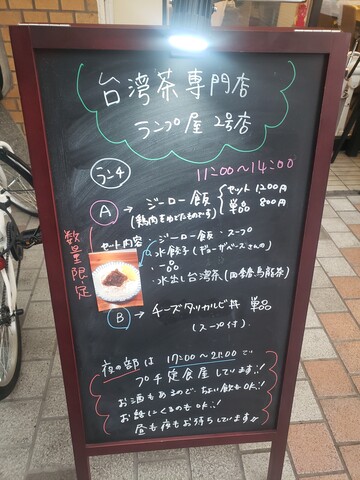 台湾茶専門店
ランプ屋 2号店
ランチ 11:00～14:00
A → ジーロー飯 セット 1200円
(鶏肉をゆでたものです) 単品 800円
数量限定
セット内容
ジーロー飯・スープ
・水餃子(ギョーザベースさんの)
・一品
・水出し台湾茶(四季春烏龍茶)
B → チーズタッカルビ丼 単品
(スープ付)
夜の部は 17:00～21:00で
プチ定食屋しています!!
お酒もあるのでちょい飲もOK!!
お茶しにくるのもOK!!
昼も夜もお待ちしています